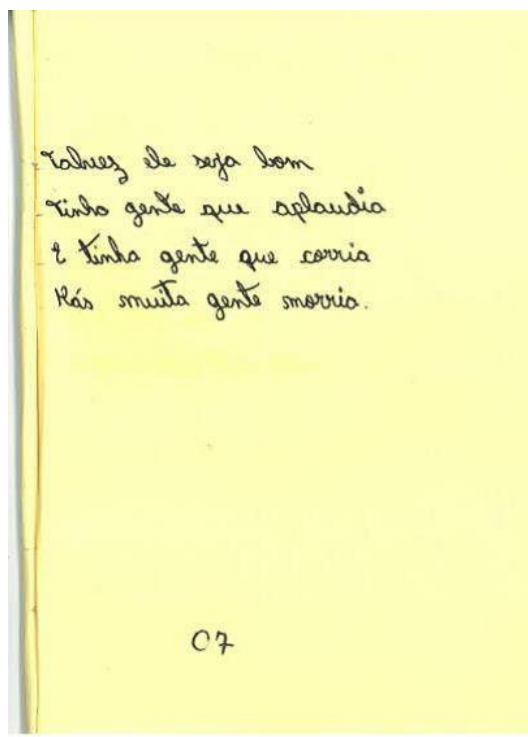 Talvez ele seja bom
Tinha gente que aplaudia
E tinha gente que corria
Más muita gente morria.
07